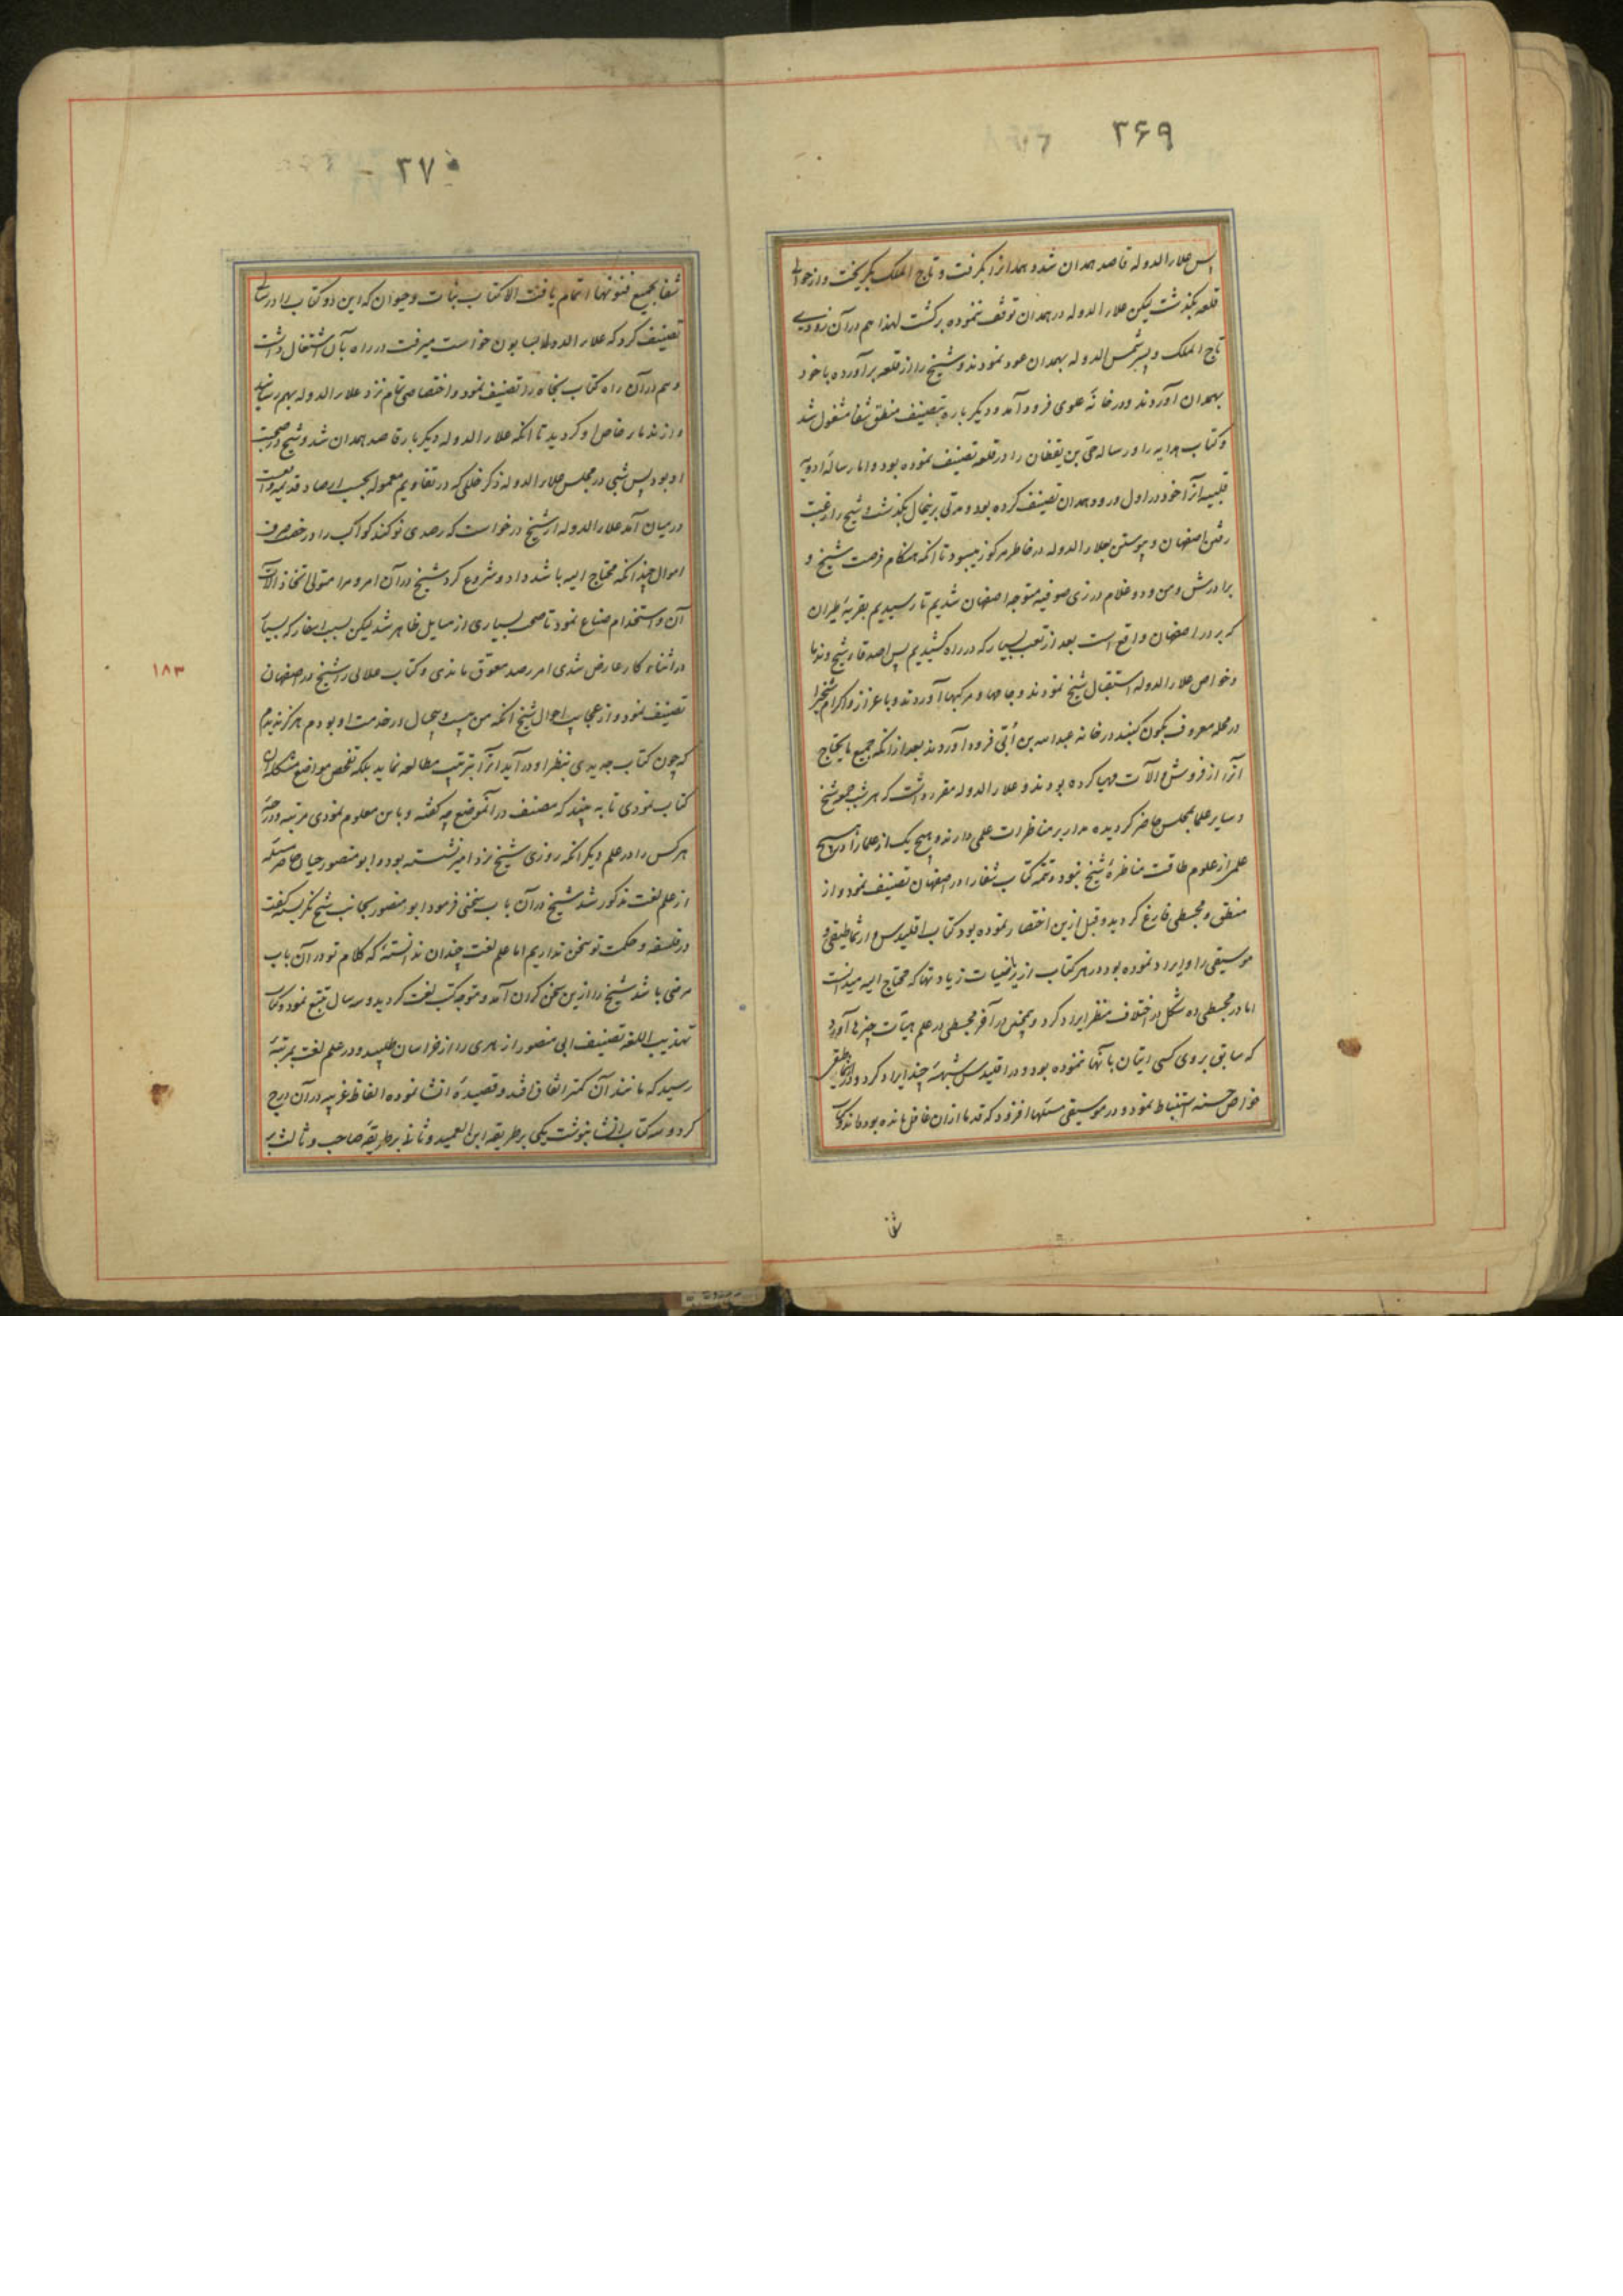 ۲۶۹
پس علاء الدوله قاصد همدان شد و همدانرا بگرفت و تاج الملک بگریخت و از حوالی
قلعه بگذشت لیکن علاء الدوله در همدان توقف ننموده برگشت لهذا هم در آن زودی
تاج الملک و پسر شمس الدوله بهمدان عود نمودند و شیخ را از قلعه برآورده با خود
بهمدان آوردند و در خانهٔ علوی فرود آمد و دیگر باره بتصنیف منطق شفا مشغول شد
و کتاب هدایه را و رساله حی بن یقظان را در قلعه تصنیف نموده بود و اما رسالهٔ ادویهٔ
قلبیه آنرا خود در اول ورود همدان تصنیف کرده بود و مدتی برینحال بگذشت و شیخ را رغبت
رفتن اصفهان و پیوستن بعلاء الدوله در خاطر مرکوز میبود تا انکه هنگام فرصت شیخ و
برادرش و من و دو غلام در زی صوفیه متوجه اصفهان شدیم تا رسیدیم بقریهٔ طبران
که بر در اصفهان واقع است بعد از تعب بسیار که در راه کشیدیم پس اصدقاء شیخ و ندما
و خواص علاء الدوله استقبال شیخ نمودند و جامها و مرکبها آوردند و با عزاز و اکرام شیخ را
در محله معروف بکون کنبد در خانه عبدالله بن اُبّی فرود آوردند بعد از انکه جمیع مایحتاج
آنرا از فروش و آلات مهیا کرده بودند و علاء الدوله مقرر داشت که هر شب جمعه شیخ
و سایر علما بمجلس حاضر گردیده مدار بر مناظرات علمی دارند و هیچ یک از علما را در هیچ
علم از علوم طاقت مناظرهٔ شیخ نبود و تتمه کتاب شفا را در اصفهان تصنیف نمود و از
منطق و مجسطی فارغ گردید و قبل ازین اختصار نموده بود کتاب اقلیدس و ارثماطیقی و
موسیقی را و ایراد نموده بود در هر کتاب از ریاضیات زیادتها که محتاج الیه میدانست
اما در مجسطی ده شکل در اختلاف منظر ایراد کرد و همچنین در آخر مجسطی در علم هیأت چیزها آورد
که سابق بر وی کسی اتیان بآنها ننموده بود و در اقلیدس شبههٔ چند ایراد کرد و در ارثماطیقی
خواص حسنه استنباط نمود و در موسیقی مسئلها افزود که قدما از ان غافل مانده بودهاند و کتاب
شفا
۲۷۰
شفا بجمیع فنونها اتمام یافت الا کتاب نبات و حیوان که این دو کتاب را در سالی
تصنیف کرد که علاء الدوله بسابون خواست میرفت در راه بآن اشتغال داشت
و هم در آن راه کتاب نجاة را تصنیف نمود و اختصاصی تام نزد علاء الدوله بهم رسانید
و از ندماء خاص او گردید تا انکه علاء الدوله دیگر بار قاصد همدان شد و شیخ در صحبت
او بود پس شبی در مجلس علاء الدوله ذکر خللی که در تقاویم معموله بحسب ارصاد قدیمه واقعست
در میان آمد علاء الدوله از شیخ درخواست که رصدی نو کند کواکب را و رخصت صرف
اموال چندانکه محتاج الیه باشد داد و شروع کرد شیخ در آن امر و مرا متولی اتخاذ آلات
آن و استخدام صناع نمود تا صحت بسیاری از مسایل ظاهر شد لیکن بسبب اسفار که بسیار
در اثناء کار عارض شدی امر رصد معوّق ماندی و کتاب علائی را شیخ در اصفهان
تصنیف نمود و از عجایب احوال شیخ انکه من بیست و پنجسال در خدمت او بودم هرگز ندیدم
که چون کتاب جدیدی بنظر او در آید آنرا بترتیب مطالعه نماید بلکه تفحص مواضع مشکله آن
کتاب نمودی تا به بیند که مصنف در آنموضع چه گفته و باین معلوم نمودی مرتبه و درجهٔ
هر کس را در علم دیگر انکه روزی شیخ نزد امیر نشسته بود و ابو منصور جبان حاضر مسئله
از علم لغت مذکور شد شیخ در آن باب سخنی فرمود ابو منصور بجانب شیخ نگریسته گفت
در فلسفه و حکمت تو سخن نداریم اما علم لغت چندان ندانستهٔ که کلام تو در آن باب
مرضی باشد شیخ را ازین سخن گران آمد و متوجه کتب لغت گردید و سه سال تتبع نمود و کتاب
تهذیب اللغه تصنیف ابی منصور ازهری را از خراسان طلبید و در علم لغت بمرتبهٔ
رسید که مانند آن کمتر اتفاق افتد و قصیدهٔ انشا نموده الفاظ غریبه در آن درج
کرد و سه کتاب انشا بنوشت یکی بر طریقه ابن العمید و ثانی بر طریقهٔ صاحب و ثالث بر
۱۸۳